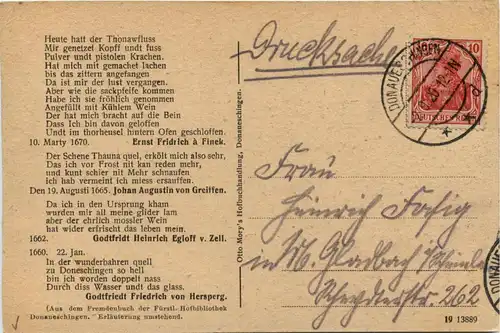 Heute hatt der Thonawfluss
Mir genetzet Kopff undt fuss
Pulver undt pistolen Krachen.
Hat mich mit gemachet lachen
bis das zittern angefangen
Da ist mir der lust vergangen.
Aber wie die sackpfeife kommen
Habe ich sie fröhlich genommen
Angefüllt mit Kühlem Wein
Der hat mich bracht auf die Bein
Dass Ich bin davon geloffen
Undt im thorheusel huntern Ofen geschloffen.
10. Marty 1670. Ernst Fridrich à Finek.
Der Schene Thauna quel, erkölt mich also sehr,
Das ich vor Frost nit kan reden mehr,
und kunt schier nit Mehr schnaufen
ich hab vermeint ich miess ersauffen.
Den 19. Augusti 1665. Johan Augustin von Greiffen.
Da ich in den Ursprung kham
wurden mir all meine glider lam
aber der ehrlich mossler Wein
hat wider erfrischt das leben mein.
1662. Godtfridt Heinrich Egloff v. Zell.
1660. 22. Jan.
In der wunderbahren quell
zu Doneschingen so hell
bin ich worden doppelt nass
Durch diss Wasser und das glass.
Godtfriedt Friedrich von Hersperg.
(Aus dem Fremdenbuch der Fürstl. Hofbibliothek
Donaueschingen. Erläuterung umstehend.
Otto Mory's Hofbuchhandlung, Donaueschingen.
Drucksache
DONAUESCHINGEN
10
DEUTSCHES REICH
Frau
Heinrich
in M. Gladbach
262
19 13889
DONAUES